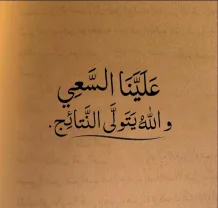 عَلَيَّنَا السَّعِي
و اللهُ يَتَولَّى النَّتَائِج.